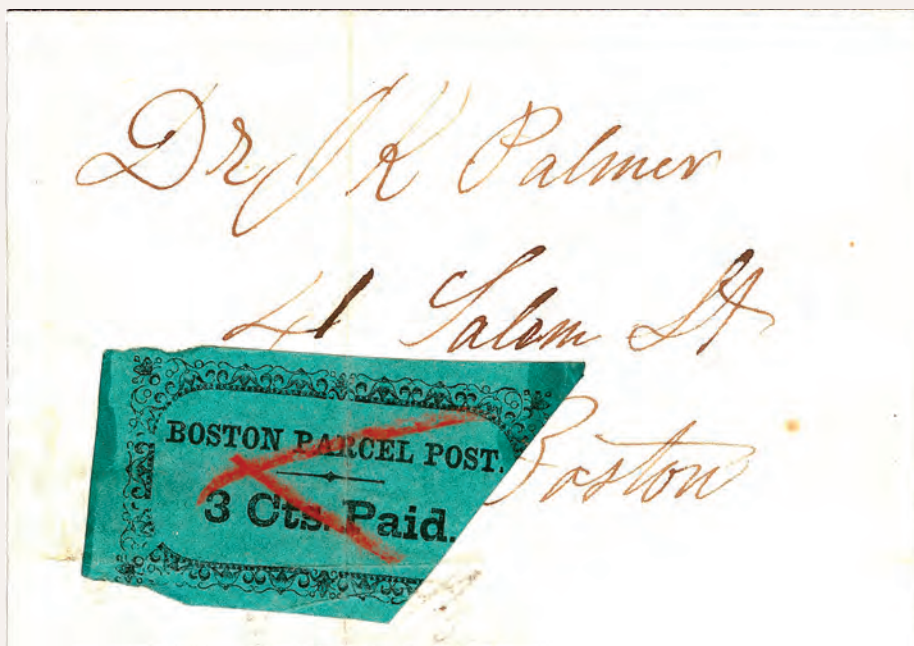 Dr J K Palmer
41 Salem St
Boston
BOSTON PARCEL POST.
3 Cts. Paid.